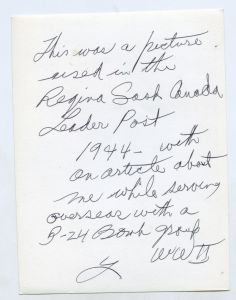 This was a picture
used in the
Regina Sask Canada
Leader Post
1944 - with
an article about
me while serving
overseas with a
B-24 Bomb group
WW II